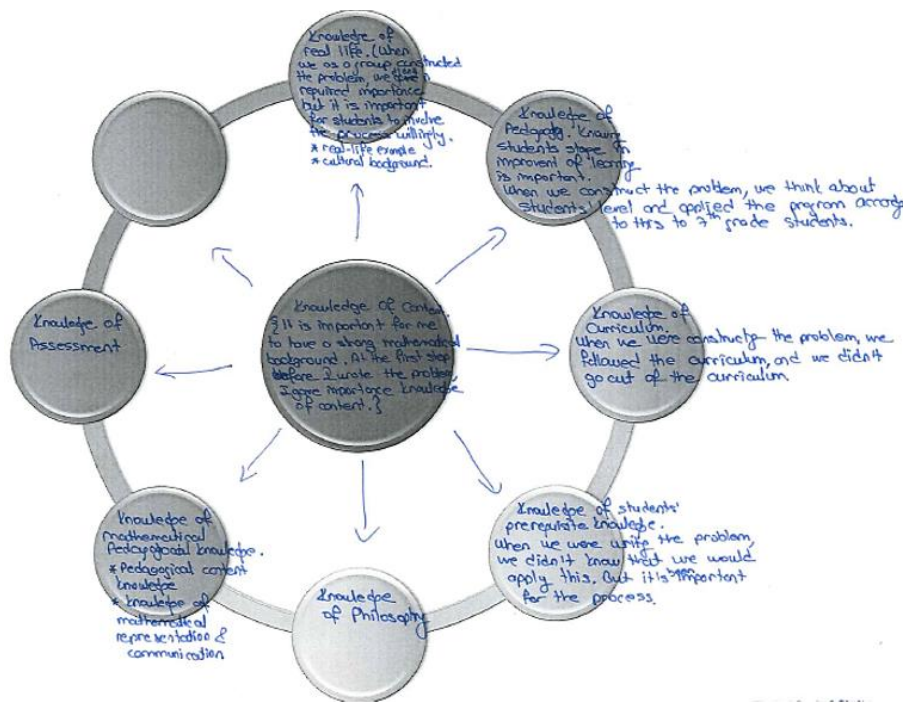 Knowledge of
real life. (When
we as a group constructed
the problem, we didn't
required importance
but it is important
for students to involve
the process willingly.
* real-life example
* cultural background.
Knowledge of
Pedagogy. Knowing
students stage in
improvent of learning
is important.
When we construct the problem, we think about
students' level and applied the program accord
to this to 7th grade students.
Knowledge of
Curriculum.
When we were constructg the problem, we
followed the curriculum, and we didn't
go out of the curriculum.
Knowledge of students'
prerequisite knowledge.
When we were write the problem,
we didn't know that we would
apply this. But it is important
for the process.
Knowledge
of Philosophy
Knowledge of
mathematical
Pedagogical knowledge.
* Pedagogical content
knowledge
* knowledge of
mathematical
representation &
communication
Knowledge of
Assessment
Knowledge of Content.
{It is important for me
to have a strong mathematical
background. At the first step
before I wrote the problem,
I gave importance knowledge
of content.}